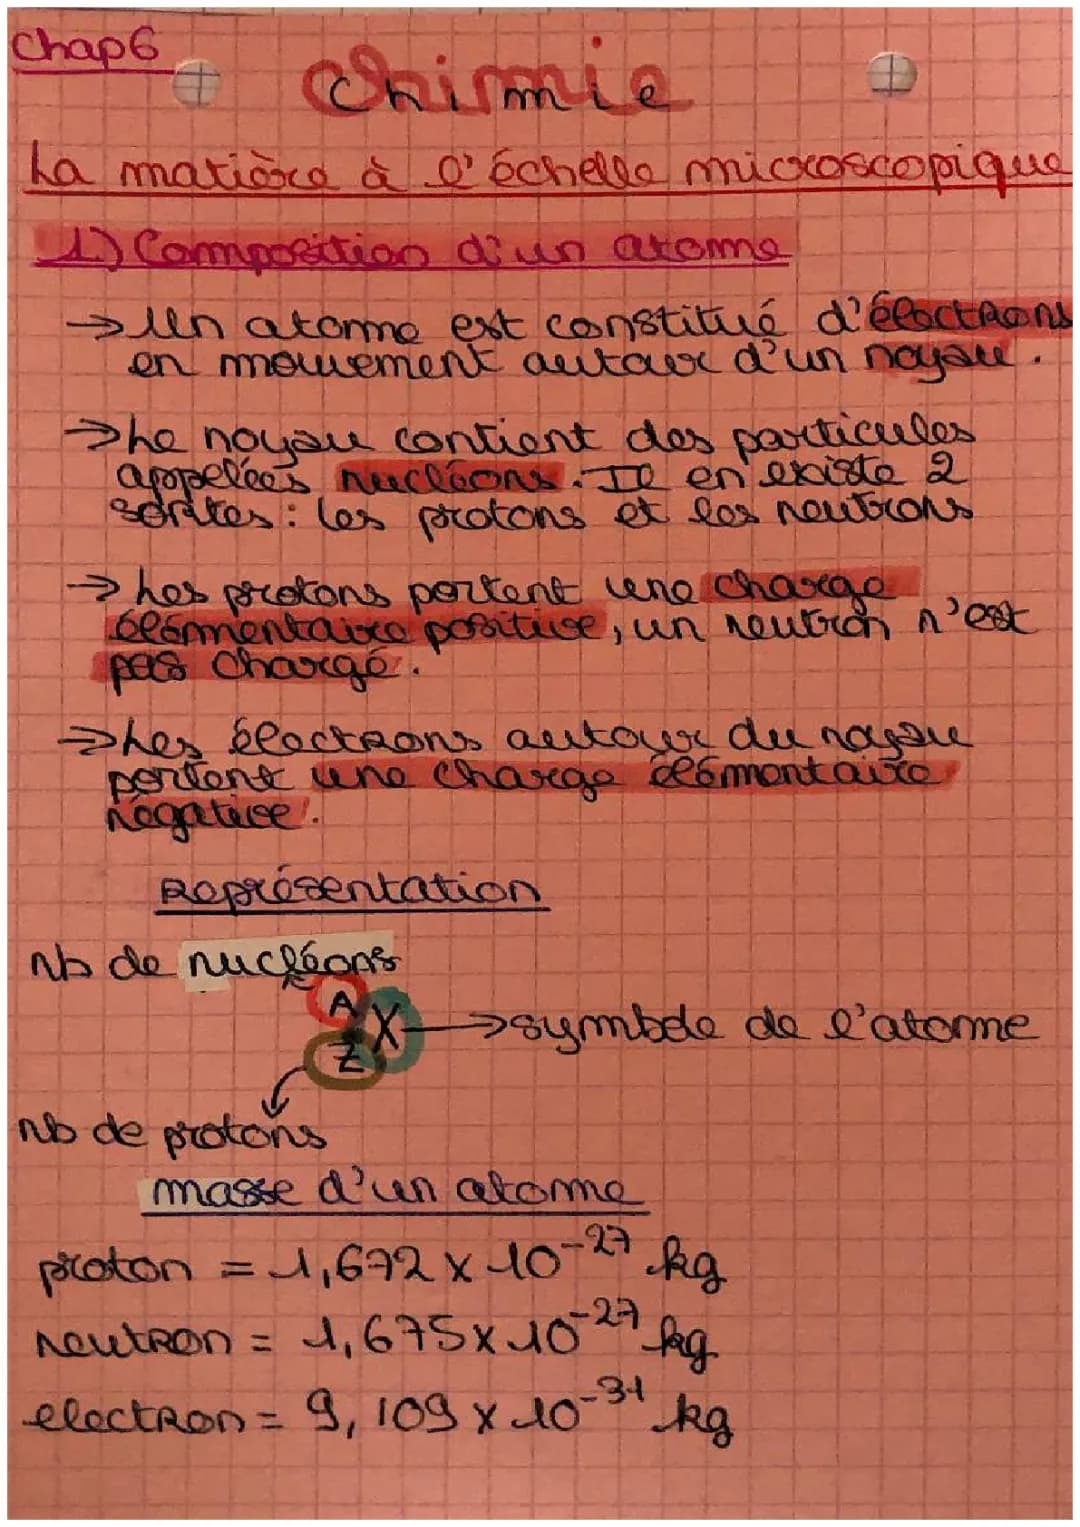 Chap6
Chimie
La matière à l'échelle microscopique
1) Composition d'un atome
→ Un atome est constitué d'électrons
en mouvement autour d'un noyau.
→ Le noyau contient des particules
appelées nucléons. Il en existe 2
sortes : les protons et les neutrons
→ Les protons portent une charge
élémentaire positive, un neutron n'est
pas chargé.
→ Les électrons autour du noyau
portent une charge élémentaire
négative.
Représentation
nb de nucléons
A
X → symbole de l'atome
Z
nb de protons
masse d'un atome
proton = 1,672 x 10⁻²⁷ kg
neutron = 1,675 x 10⁻²⁷ kg
electron = 9,109 x 10⁻³¹ kg